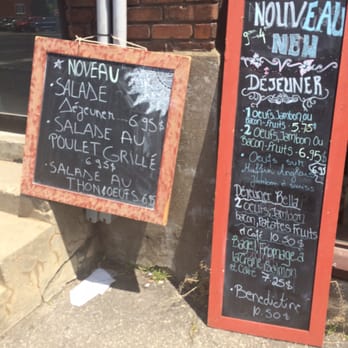 NOVEAU
• SALADE
Déjeuner... 6.95$
• SALADE AU
POULET GRILLÉ
6.95$
• SALADE AU
THON & OEUFS 6.95
NOUVEAU
9-4 NEW
DÉJEUNER
• 1 Oeufs Jambon Ou
bacon-fruits 5.75$
• 2 Oeufs Jambon Ou
Bacon-fruits • 6.95$
• Oeufs sur
Muffin Anglais
Jambon
Déjeuner Bella
2 Oeufs, Jambon
bacon, Patates Fruits
et Café 10.50$
Bagel, Fromage à
la Crème, Saumon
et Café 7.25$
• Bénédictine
10.50$